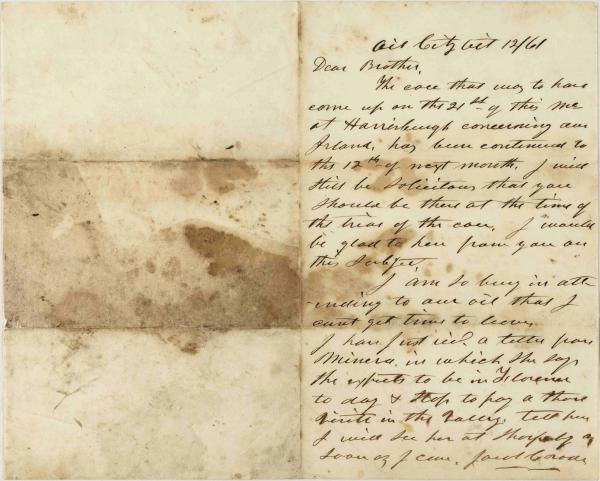 Oil City Oct 12/61
Dear Brother,
The case that was to have
come up on the 21st of this mo
at Harrisburgh concerning our
Island, has been continued to
the 12th of next month. I will
still be solicitous that you
should be there at the time of
the trial of the case. I would
be glad to hear from you on
this subject.
I am so busy in att-
-ending to our oil that I
cant get time to leave.
I have just recd. a letter from
Minerva in which she says
she expects to be in Florence
to day & stops to pay a short
visit in the Valley. tell her
I will see her at as
soon as I can. Jacob